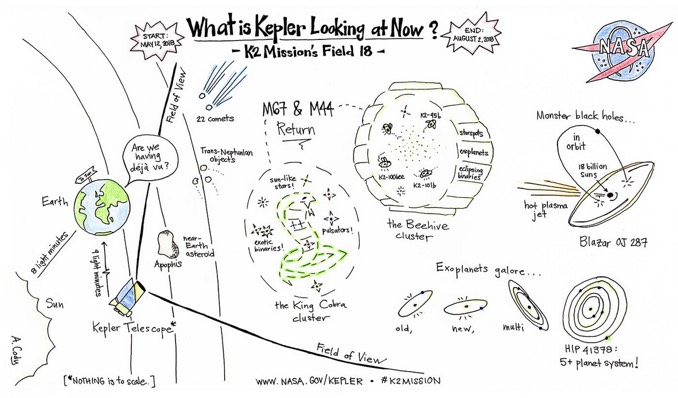 What is Kepler Looking at Now?
- K2 Mission's Field 18 -
START:
MAY 12, 2018
END:
AUGUST 2, 2018
NASA
Field of View
22 comets
Trans-Neptunian
objects
Are we
having
déjà vu?
Earth
8 light minutes
9 light minutes
Sun
near-
Earth
asteroid
Apophis
Kepler Telescope*
M67 & M44
Return
sun-like
stars!
exotic
binaries!
pulsators!
the King Cobra
cluster
K2-95b
K2-100b
K2-101b
starspots
exoplanets
eclipsing
binaries
the Beehive
cluster
Monster black holes...
in
orbit
18 billion
suns
hot plasma
jet
Blazar OJ 287
Exoplanets galore...
old,
new,
multi
HIP 41378:
5+ planet system!
Field of View
A. Cody
[*NOTHING is to scale.]
WWW.NASA.GOV/KEPLER • #K2MISSION